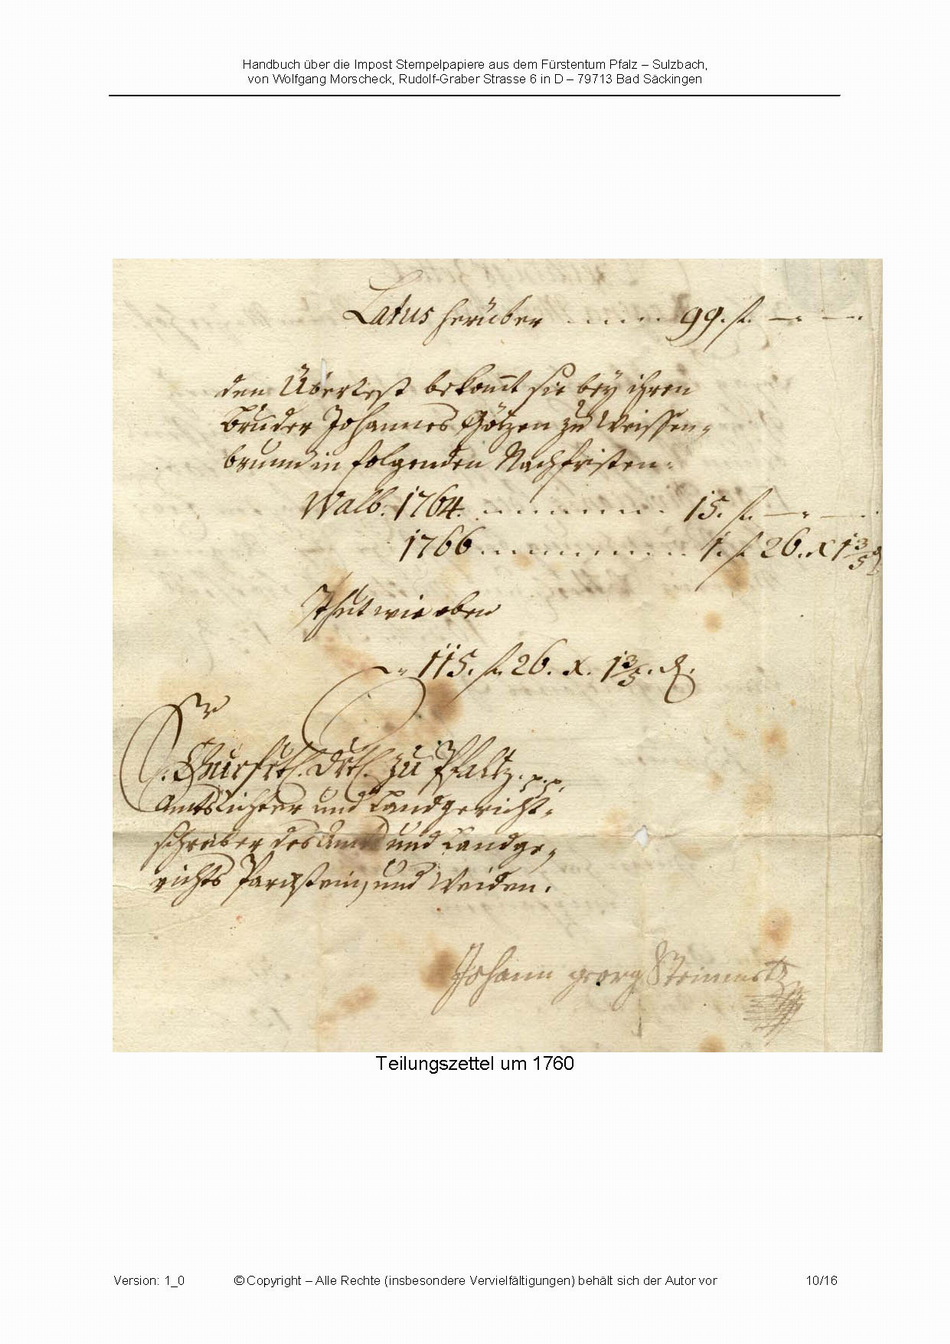 Handbuch über die Impost Stempelpapiere aus dem Fürstentum Pfalz – Sulzbach,
von Wolfgang Morscheck, Rudolf-Graber Strasse 6 in D – 79713 Bad Säckingen
Latus herüber ..... 99. f. — . —
den Überrest bekomt sie bey ihren
Bruder Johannes Götzen zu Weissen-
brunn in folgenden Nachfristen:
Walb. 1764 ........ 15. f. — . —
1766 ........ 1. f. 26. x 1 3/5 d
Thut wie oben
115. f. 26. x. 1 3/5 d.
Churfrtl. Drtl. zu Pfaltz p. p.
Amtsrichter und Landgericht-
schreiber des Amt und Landge-
richts Parckstein, und Weiden.
Johann georg Steinmetz
Teilungszettel um 1760
Version: 1_0 © Copyright – Alle Rechte (insbesondere Vervielfältigungen) behält sich der Autor vor 10/16